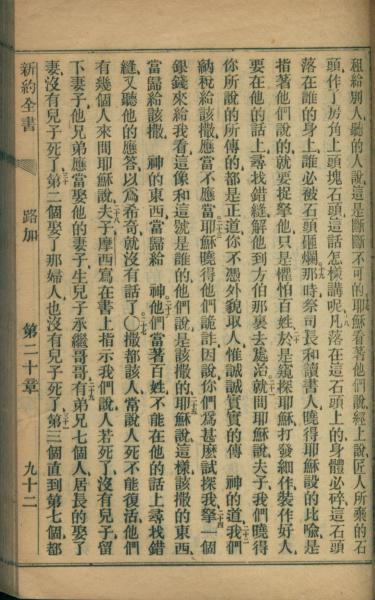 租給別人、聽的人說、這是斷斷不可的、耶穌看著他們說、經上說、匠人所棄的石
頭、作了房角上頭塊石頭、這話怎樣講呢、凡落在這石頭上的、身體必碎、這石頭
落在誰的身上、誰必被石頭砸爛、那時祭司長和讀書人、曉得耶穌設的比喻、是
指著他們說的、就要捉拏他、只是懼怕百姓、於是窺探耶穌、打發細作裝作好人、
要在他的話上尋找錯縫、解他到方伯那裏去處治、就問耶穌說、夫子、我們曉得
你所說的所傳的都是正道、你不憑外貌取人、惟誠誠實實的傳　神的道、我們
納稅給該撒、應當不應當、耶穌曉得他們詭詐、因說、你們爲甚麼試探我、拏一個
銀錢來給我看、這像和這號是誰的、他們說、是該撒的、耶穌說、這樣該撒的東西、
當歸給該撒、　神的東西、當歸給　神、他們當著百姓不能在他的話上尋找錯
縫、又聽他的應答、以爲希奇、就沒有話了○撒都該人常說人死不能復活、他們
有幾個人來問耶穌說、夫子、摩西寫在書上指示我們說、人若死了、沒有兒子、留
下妻子、他兄弟應當娶他的妻子、生兒子承繼哥哥、有弟兄七個人、居長的娶了
妻、沒有兒子死了、第二個娶了那婦人、也沒有兒子死了、第三個直到第七個都
新約全書　路加　第二十章　九十二